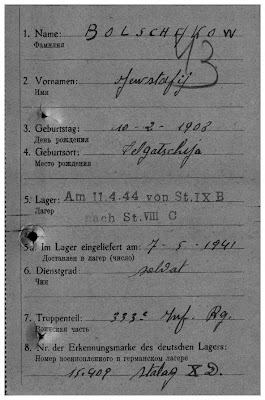 1. Name: BOLSCHEKOW
Фамилия
13
2. Vornamen:
Имя
3. Geburtstag: 10-2-1908
День рождения
4. Geburtsort:
Место рождения
5. Lager: Am 11.4.44 von St.IX B
Лагер nach St.VIII C
5a. Im Lager eingeliefert am: 7-5-1941
Доставлен в лагер (число)
6. Dienstgrad: soldat
Чин
7. Truppenteil: 333e Inf. Rg.
Воинская часть
8. Nr. der Erkennungsmarke des deutschen Lagers:
Номер военнопленного и германском лагере
15.409 Stalag X D.